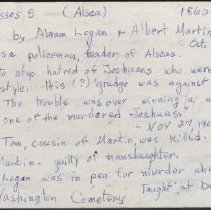 sses 5 (Alsea) 1860
by Abram Logan & Albert Martin
s a policeman, leader of Alseas. Oct.
to stop hatred of Joshuans who were
style. His (?) grudge was against
The trouble was over winning a w
one of the murdered Joshuas
- Nov 27, 19
Tom, cousin of Martin, was killed.
Martin - guilty of manslaughter.
Logan was in pen for murder wh
Taught at
Washington Cemetery